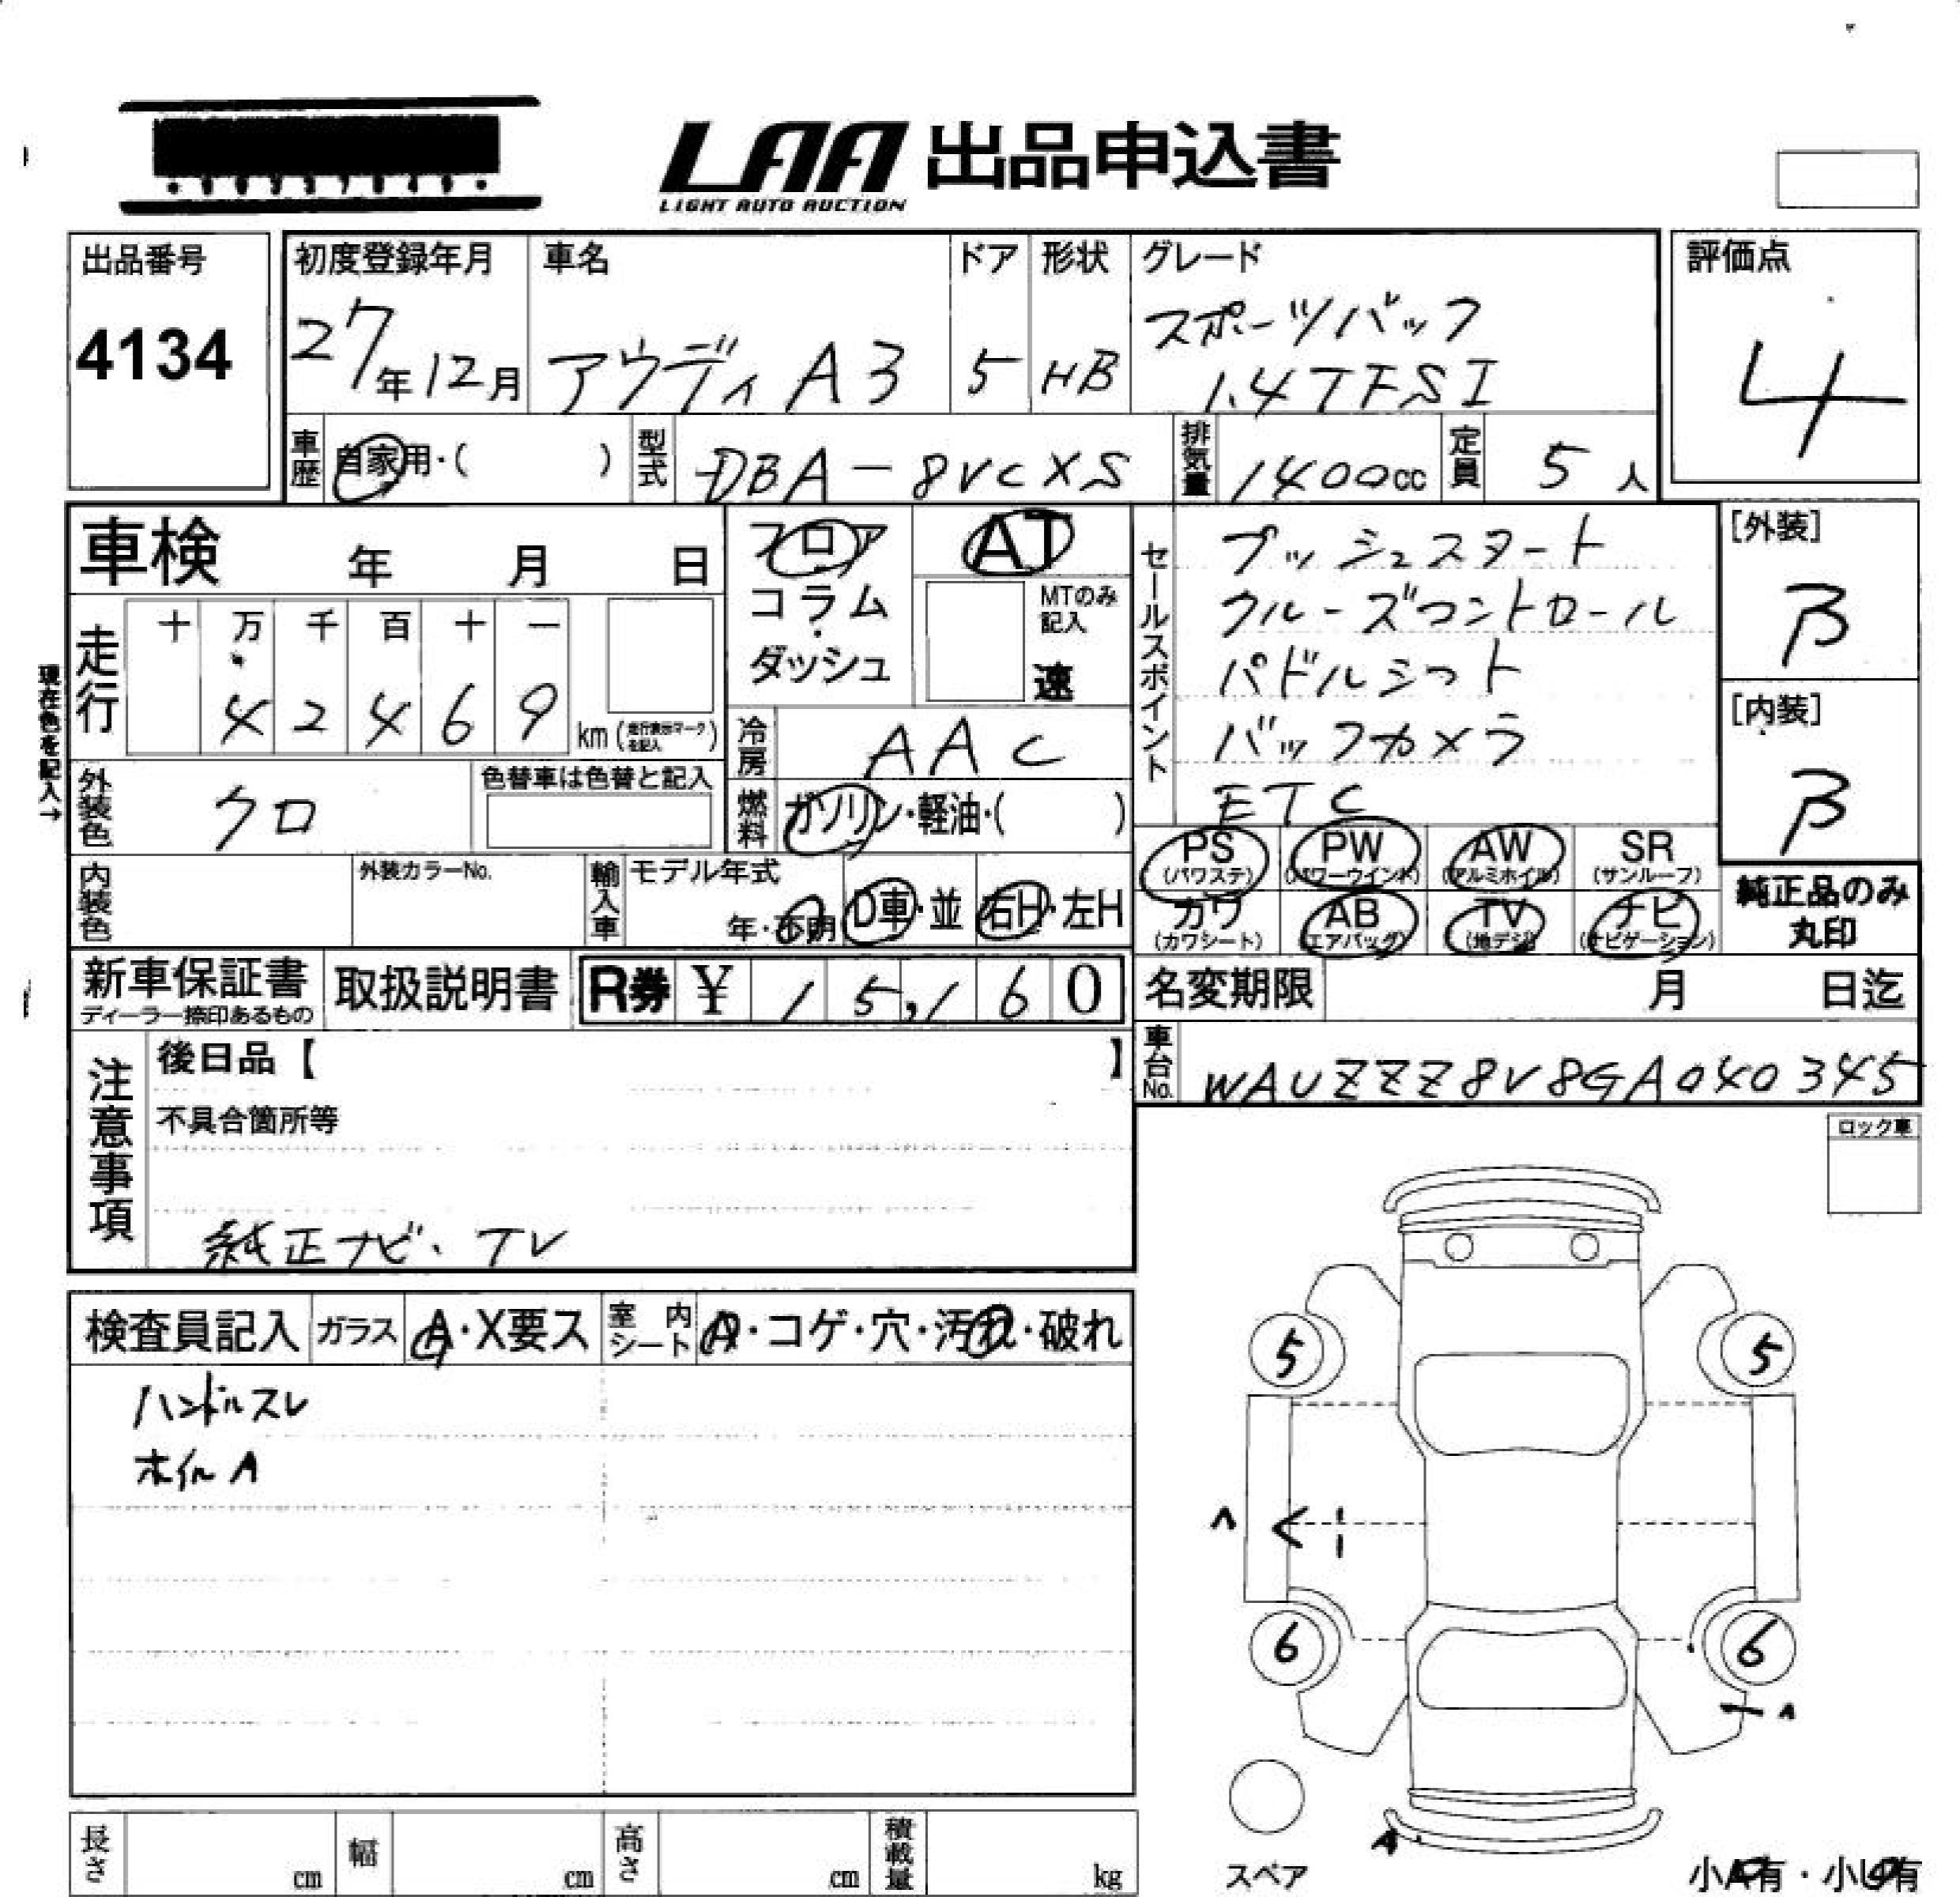 LAA 出品申込書
LIGHT AUTO AUCTION
出品番号
4134
初度登録年月
27年12月
車名
アウディ A3
ドア
5
形状
HB
グレード
スポーツバック
1.4TFSI
評価点
4
車歴 自家用・( )
型式 DBA-8VCXS
排気量 1400cc
定員 5人
車検 年 月 日
走行
十 万 千 百 十 一
4 2 4 6 9 km (走行表示マークを記入)
現在色を記入→
外装色 クロ
色替車は色替と記入
内装色
外装カラーNo.
フロア
コラム
・
ダッシュ
AT
MTのみ
記入
速
冷房 AAC
燃料 ガソリン・軽油・( )
輸入車 モデル年式
年・不明 D車・並 右H・左H
セールスポイント
プッシュスタート
クルーズコントロール
パドルシフト
バックカメラ
ETC
[外装]
B
[内装]
B
PS (パワステ)
PW (パワーウインド)
AW (アルミホイル)
SR (サンルーフ)
カワ (カワシート)
AB (エアバッグ)
TV (地デジ)
ナビ (ナビゲーション)
純正品のみ
丸印
新車保証書
ディーラー捺印あるもの
取扱説明書
R券 ¥ 15,160
名変期限 月 日迄
車台No. WAUZZZ8V8GA040345
注意事項
後日品【 】
不具合箇所等
純正ナビ、TV
ロック車
検査員記入 ガラス A・X要ス 室内シート A・コゲ・穴・汚れ・破れ
ハンドルスレ
ホイルA
5 5
6 6
A
スペア
小A有・小U有
長さ cm 幅 cm 高さ cm 積載量 kg